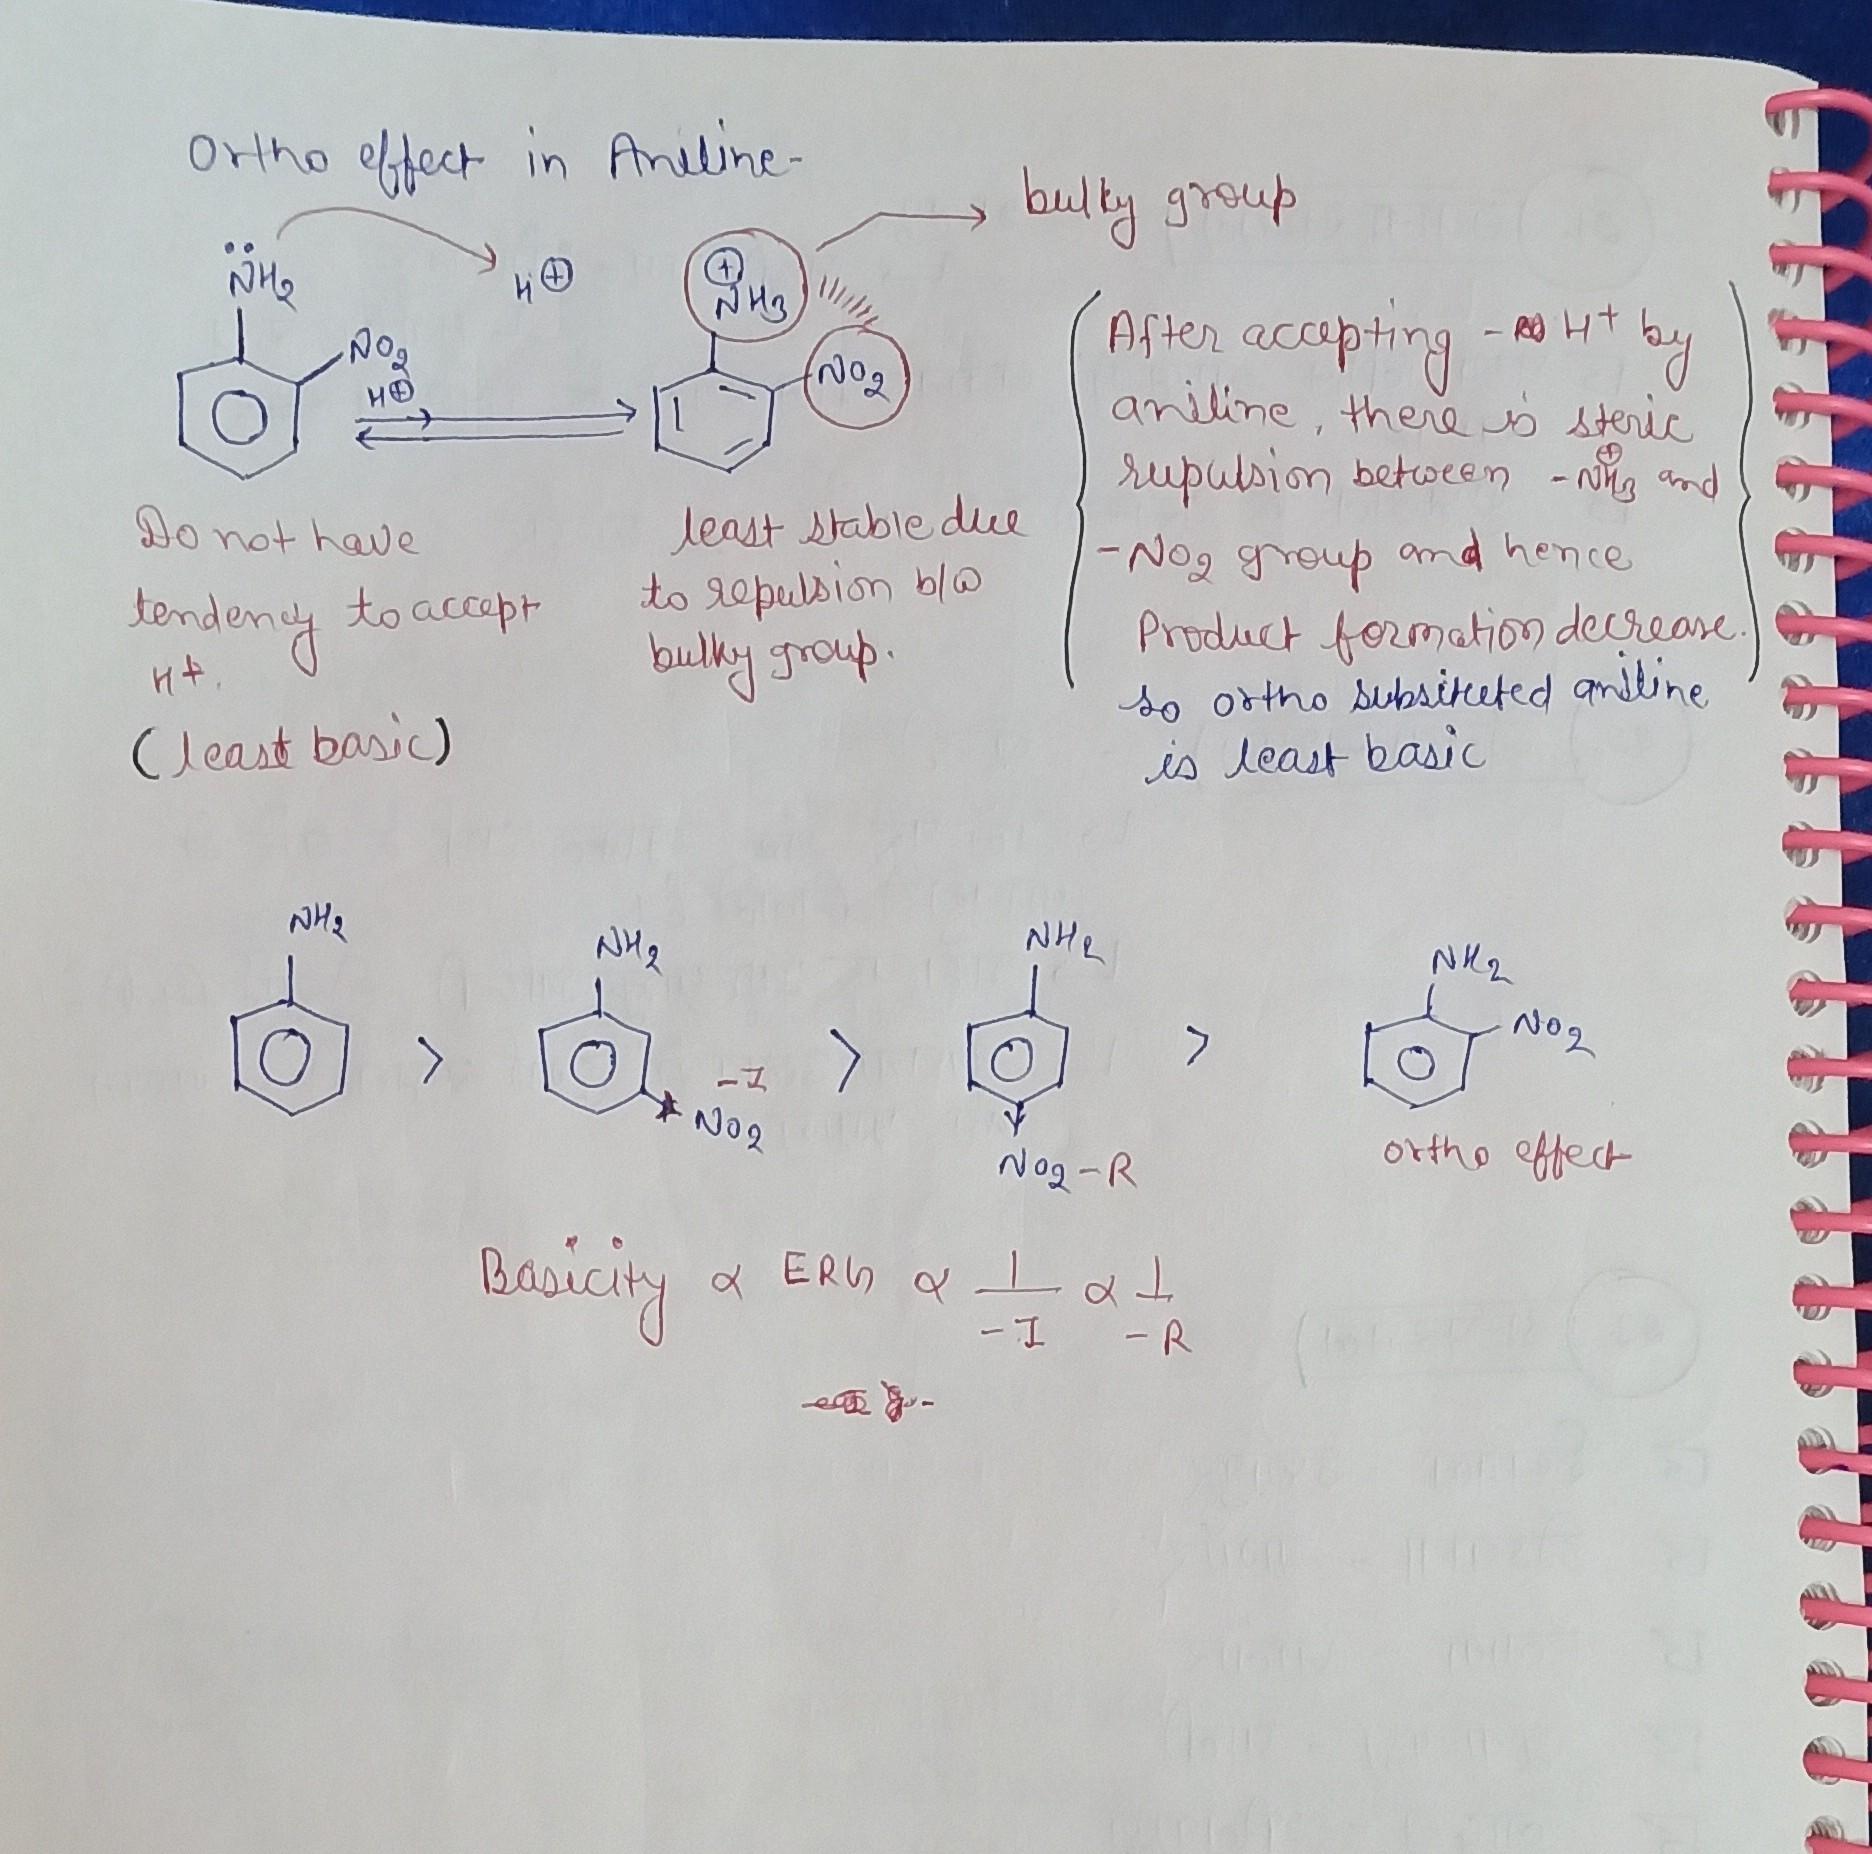 Ortho effect in Aniline-
bulky group
N̈H2
H⊕
⊕
NH3
NO2
H⊕
NO2
Do not have
tendency to accept
H+.
(least basic)
least stable due
to repulsion b/w
bulky group.
(After accepting - H+ by
aniline, there is steric
repulsion between -N⊕H3 and
-NO2 group and hence
Product formation decrease.)
so ortho subsituted aniline
is least basic
NH2 NH2 NH2 NH2
> > > NO2
-I
NO2
NO2-R
ortho effect
Basicity ∝ ERG ∝ 1/-I ∝ 1/-R